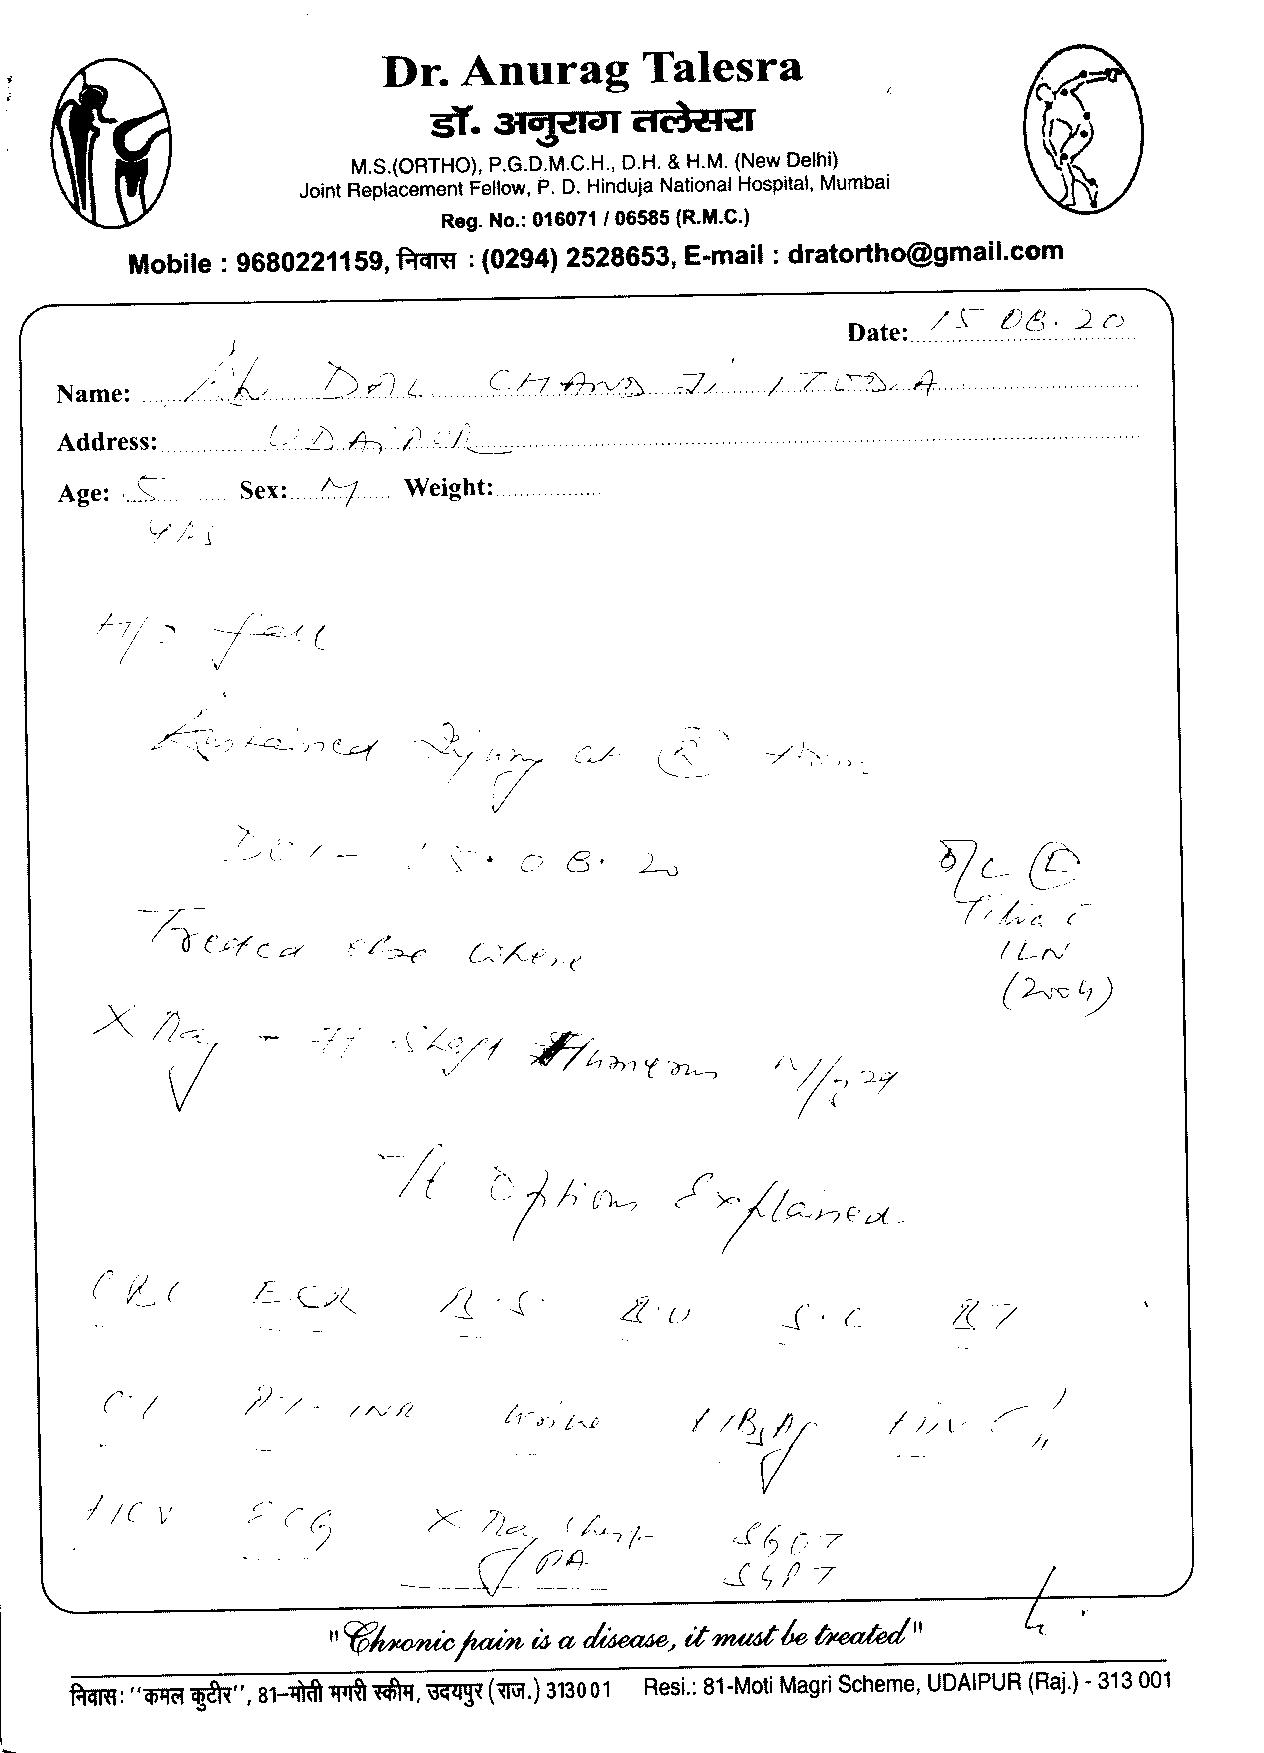 Dr. Anurag Talesra
डॉ. अनुराग तलेसरा
M.S.(ORTHO), P.G.D.M.C.H., D.H. & H.M. (New Delhi)
Joint Replacement Fellow, P. D. Hinduja National Hospital, Mumbai
Reg. No.: 016071 / 06585 (R.M.C.)
Mobile : 9680221159, निवास : (0294) 2528653, E-mail : dratortho@gmail.com
Date: 15 08. 20
Name: DAL CHAND JI ITODA
Address: UDAIPUR
Age: 5 Sex: M Weight:
YRS
H/o fall
Sustained Injury at (R)
DOI - 15. 08. 20
O/C (L)
Treated else where
Tibia c
ILN
(2004)
X Ray - # Shaft Humerus
T/t Options Explained.
CBC ESR B.S. B.U S.C BT
CT PT-INR Urine HBsAg HIV I, II
HCV ECG X Ray Chest SGOT
PA SGPT
"Chronic pain is a disease, it must be treated"
निवास: "कमल कुटीर", 81-मोती मगरी स्कीम, उदयपुर (राज.) 313001 Resi.: 81-Moti Magri Scheme, UDAIPUR (Raj.) - 313 001